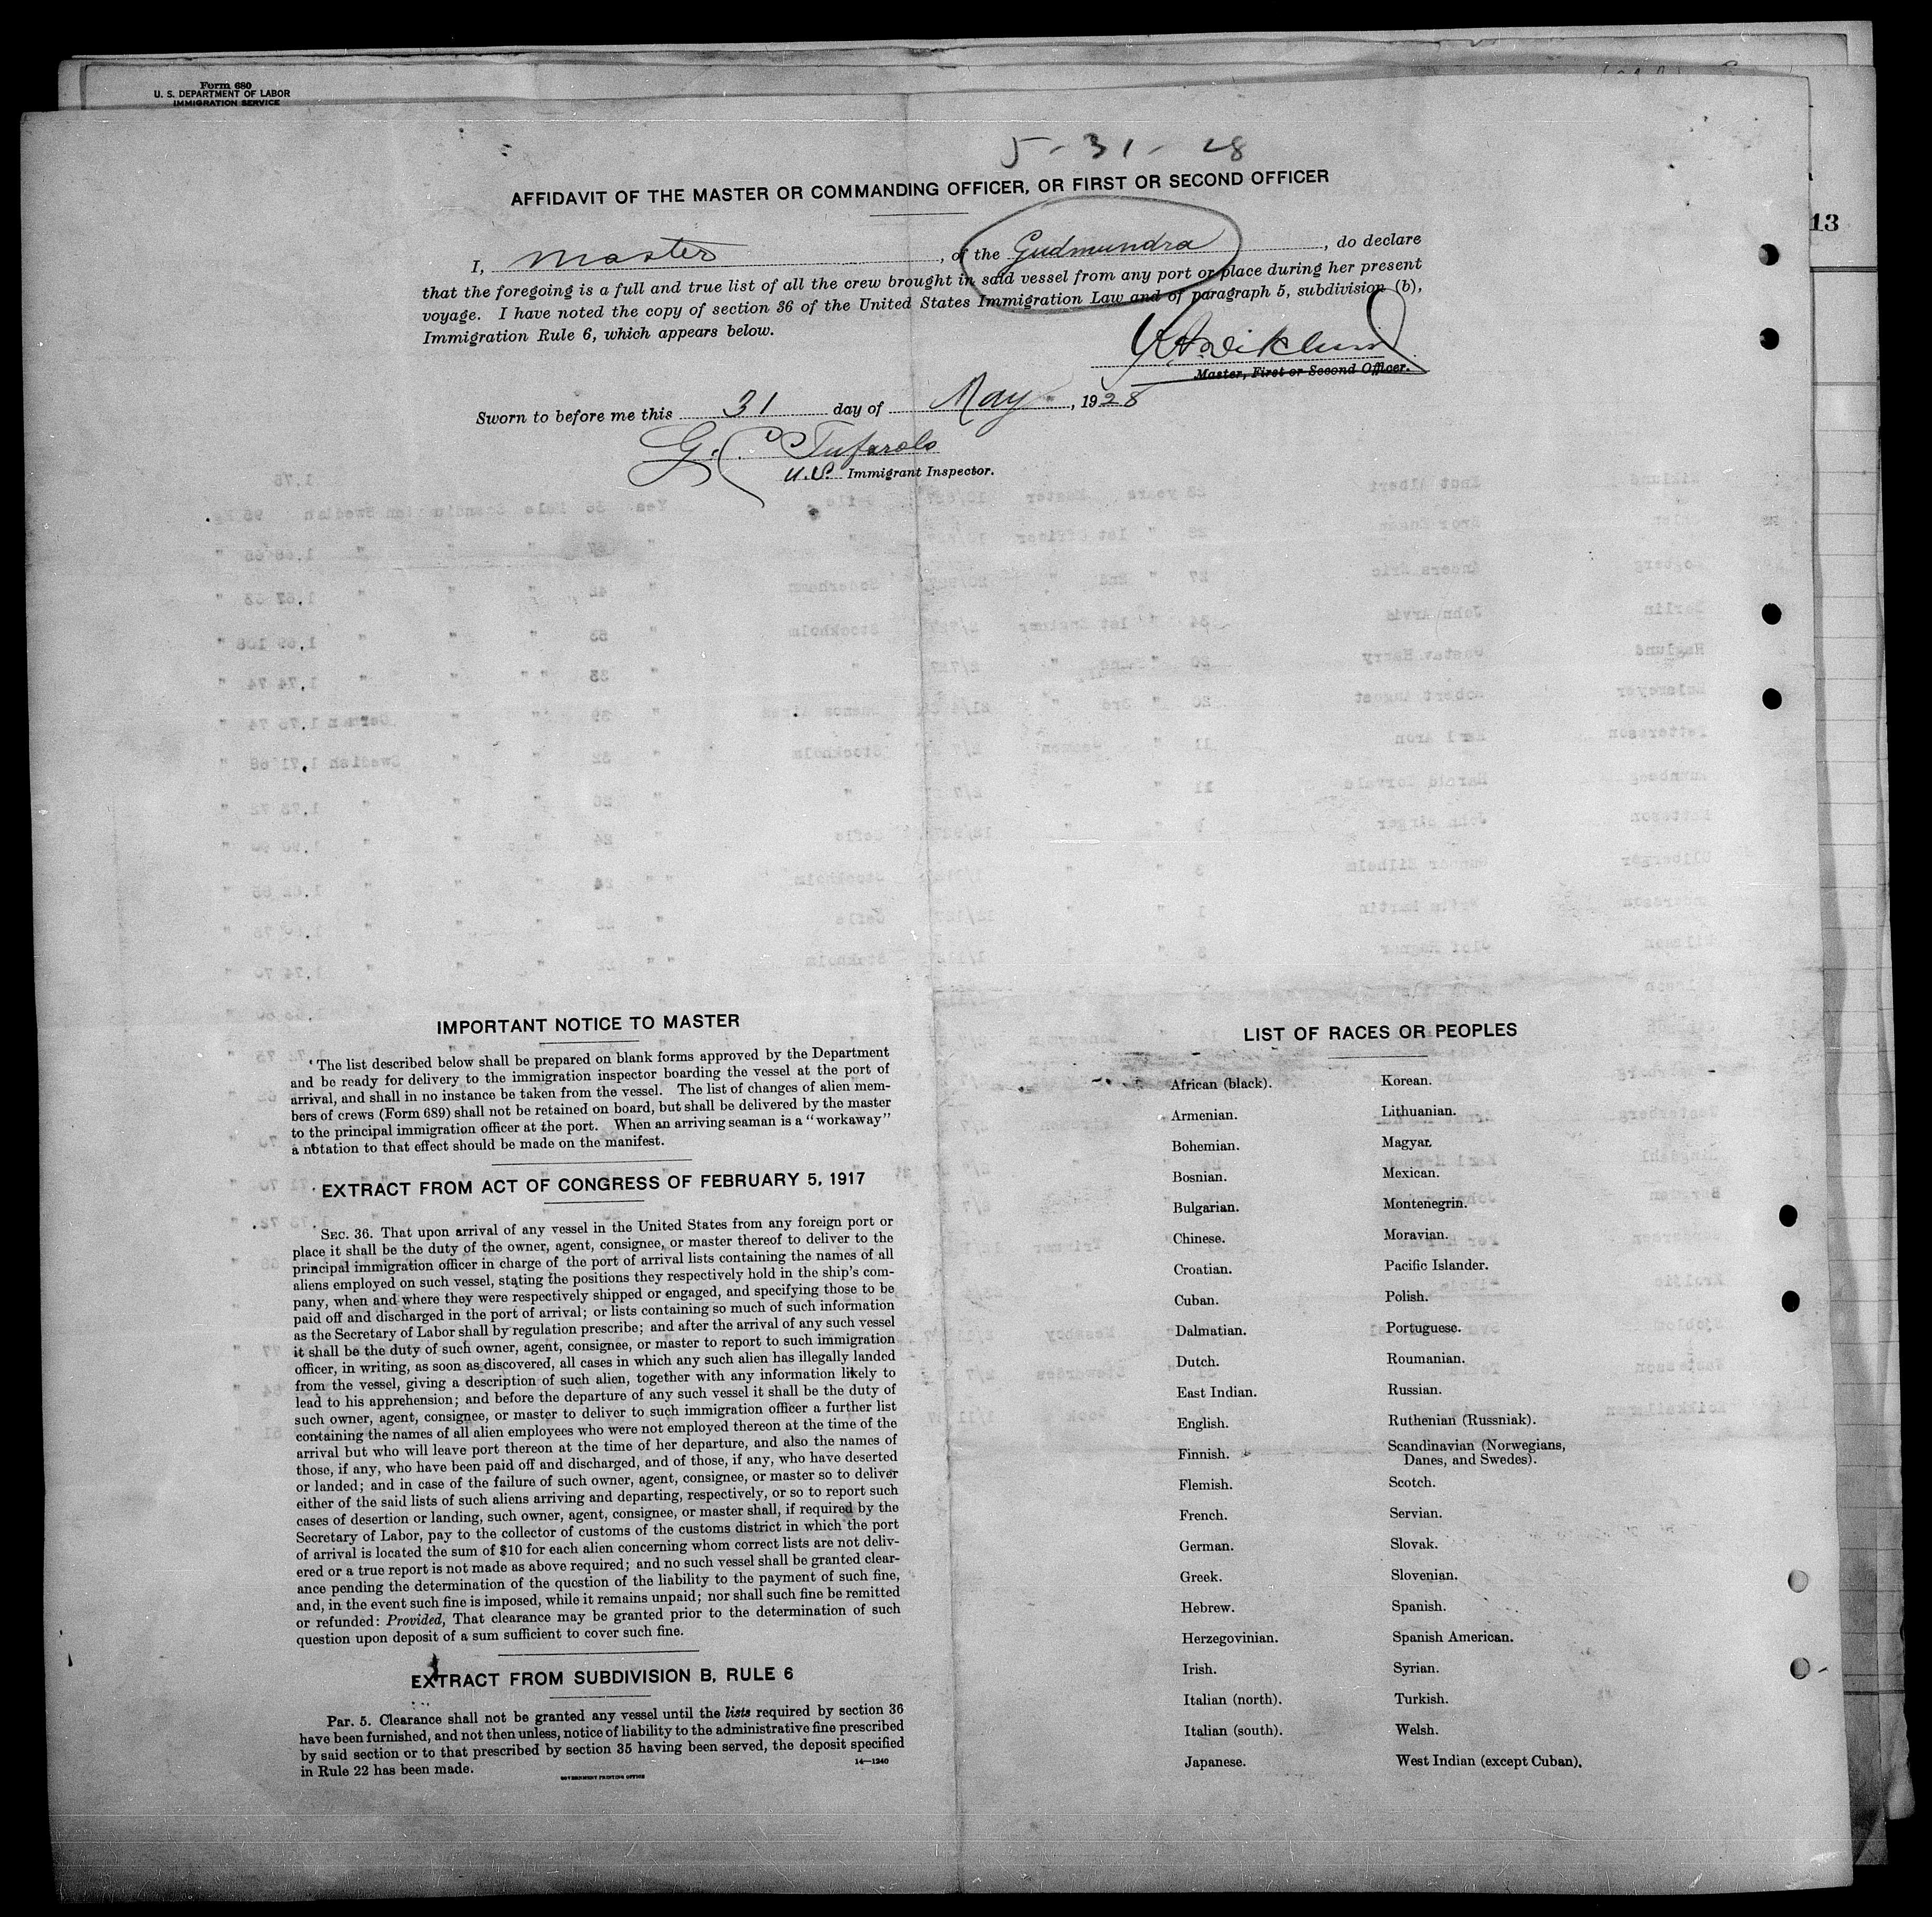 Form 680
U. S. DEPARTMENT OF LABOR
IMMIGRATION SERVICE
13
5-31-28
AFFIDAVIT OF THE MASTER OR COMMANDING OFFICER, OR FIRST OR SECOND OFFICER
I, Master, of the Gudmundra, do declare
that the foregoing is a full and true list of all the crew brought in said vessel from any port or place during her present
voyage. I have noted the copy of section 36 of the United States Immigration Law and of paragraph 5, subdivision (b),
Immigration Rule 6, which appears below.
Wiklund
Master, First or Second Officer.
Sworn to before me this 31 day of May, 1928
G. C. Tufarolo
U.S. Immigrant Inspector.
IMPORTANT NOTICE TO MASTER
The list described below shall be prepared on blank forms approved by the Department
and be ready for delivery to the immigration inspector boarding the vessel at the port of
arrival, and shall in no instance be taken from the vessel. The list of changes of alien mem-
bers of crews (Form 689) shall not be retained on board, but shall be delivered by the master
to the principal immigration officer at the port. When an arriving seaman is a "workaway"
a notation to that effect should be made on the manifest.
EXTRACT FROM ACT OF CONGRESS OF FEBRUARY 5, 1917
SEC. 36. That upon arrival of any vessel in the United States from any foreign port or
place it shall be the duty of the owner, agent, consignee, or master thereof to deliver to the
principal immigration officer in charge of the port of arrival lists containing the names of all
aliens employed on such vessel, stating the positions they respectively hold in the ship's com-
pany, when and where they were respectively shipped or engaged, and specifying those to be
paid off and discharged in the port of arrival; or lists containing so much of such information
as the Secretary of Labor shall by regulation prescribe; and after the arrival of any such vessel
it shall be the duty of such owner, agent, consignee, or master to report to such immigration
officer, in writing, as soon as discovered, all cases in which any such alien has illegally landed
from the vessel, giving a description of such alien, together with any information likely to
lead to his apprehension; and before the departure of any such vessel it shall be the duty of
such owner, agent, consignee, or master to deliver to such immigration officer a further list
containing the names of all alien employees who were not employed thereon at the time of the
arrival but who will leave port thereon at the time of her departure, and also the names of
those, if any, who have been paid off and discharged, and of those, if any, who have deserted
or landed; and in case of the failure of such owner, agent, consignee, or master so to deliver
either of the said lists of such aliens arriving and departing, respectively, or so to report such
cases of desertion or landing, such owner, agent, consignee, or master shall, if required by the
Secretary of Labor, pay to the collector of customs of the customs district in which the port
of arrival is located the sum of $10 for each alien concerning whom correct lists are not deliv-
ered or a true report is not made as above required; and no such vessel shall be granted clear-
ance pending the determination of the question of the liability to the payment of such fine,
and, in the event such fine is imposed, while it remains unpaid; nor shall such fine be remitted
or refunded: Provided, That clearance may be granted prior to the determination of such
question upon deposit of a sum sufficient to cover such fine.
EXTRACT FROM SUBDIVISION B, RULE 6
Par. 5. Clearance shall not be granted any vessel until the lists required by section 36
have been furnished, and not then unless, notice of liability to the administrative fine prescribed
by said section or to that prescribed by section 35 having been served, the deposit specified
in Rule 22 has been made.
14—1240
GOVERNMENT PRINTING OFFICE
LIST OF RACES OR PEOPLES
African (black).
Armenian.
Bohemian.
Bosnian.
Bulgarian.
Chinese.
Croatian.
Cuban.
Dalmatian.
Dutch.
East Indian.
English.
Finnish.
Flemish.
French.
German.
Greek.
Hebrew.
Herzegovinian.
Irish.
Italian (north).
Italian (south).
Japanese.
Korean.
Lithuanian.
Magyar.
Mexican.
Montenegrin.
Moravian.
Pacific Islander.
Polish.
Portuguese.
Roumanian.
Russian.
Ruthenian (Russniak).
Scandinavian (Norwegians,
Danes, and Swedes).
Scotch.
Servian.
Slovak.
Slovenian.
Spanish.
Spanish American.
Syrian.
Turkish.
Welsh.
West Indian (except Cuban).